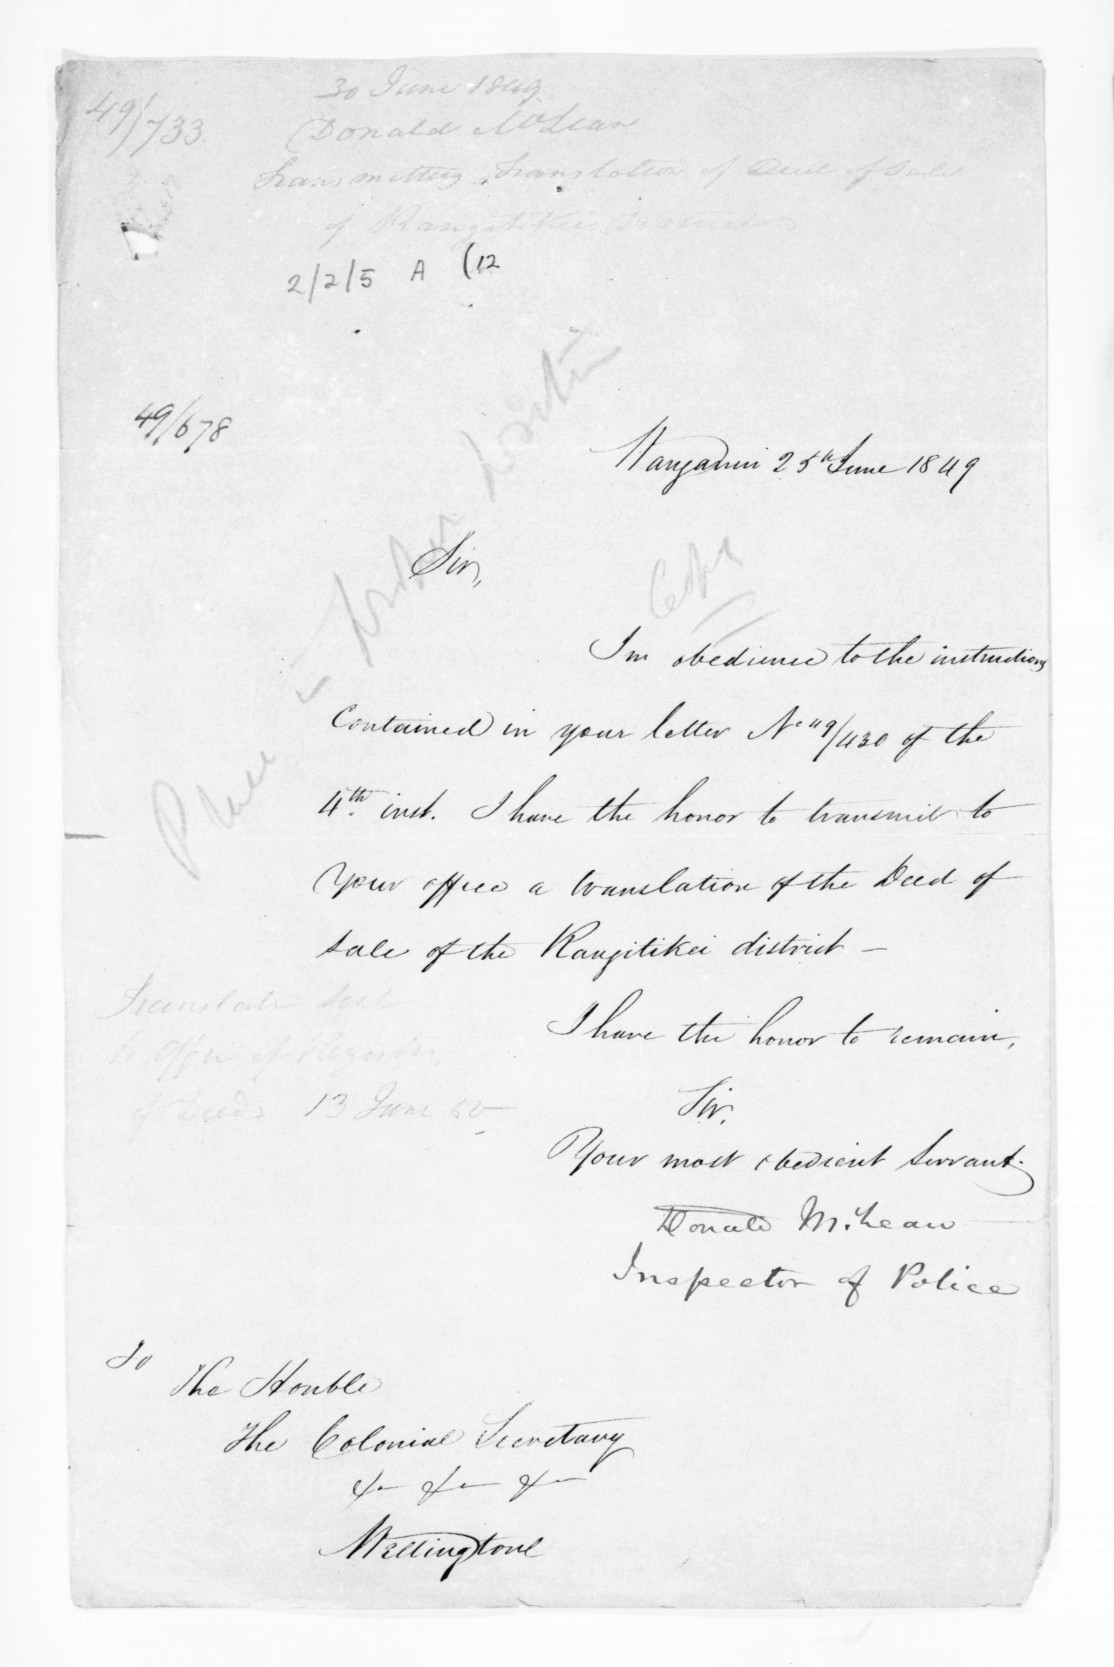 30 June 1849
49/733
Donald McLean
Transmitting Translation of Deed of Sale
of Rangitikei District
2/2/5 A (12
49/678
Wanganui 25th June 1849
Sir,
Copy
In obedience to the instructions
Contained in your letter No 49/430 of the
4th inst. I have the honor to transmit to
Your office a translation of the Deed of
Sale of the Rangitikei district —
I have the honor to remain,
Sir,
Your most obedient Servant.
Donald McLean
Inspector of Police
Translation sent
to Office of Register
of Deeds 13 June 50
To
The Honble
The Colonial Secretary
&c &c &c
Wellington